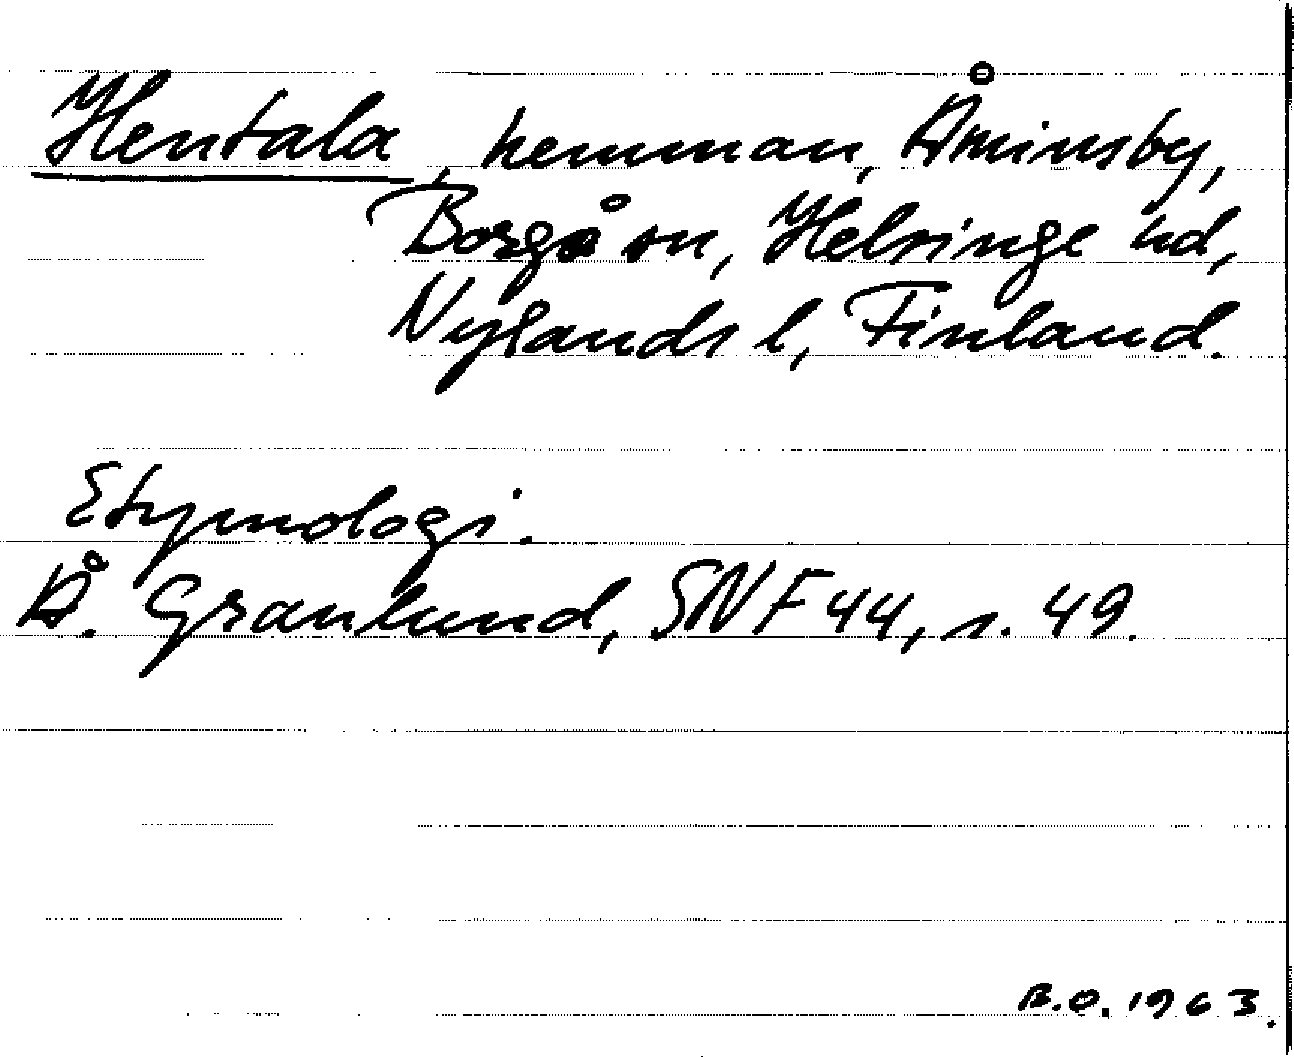 Hentala, hemman, Åminsby,
Borgå sn, Helsinge hd,
Nylands l, Finland.
Etymologi.
Å. Granlund, SNF 44, s. 49.
B.O. 1963.